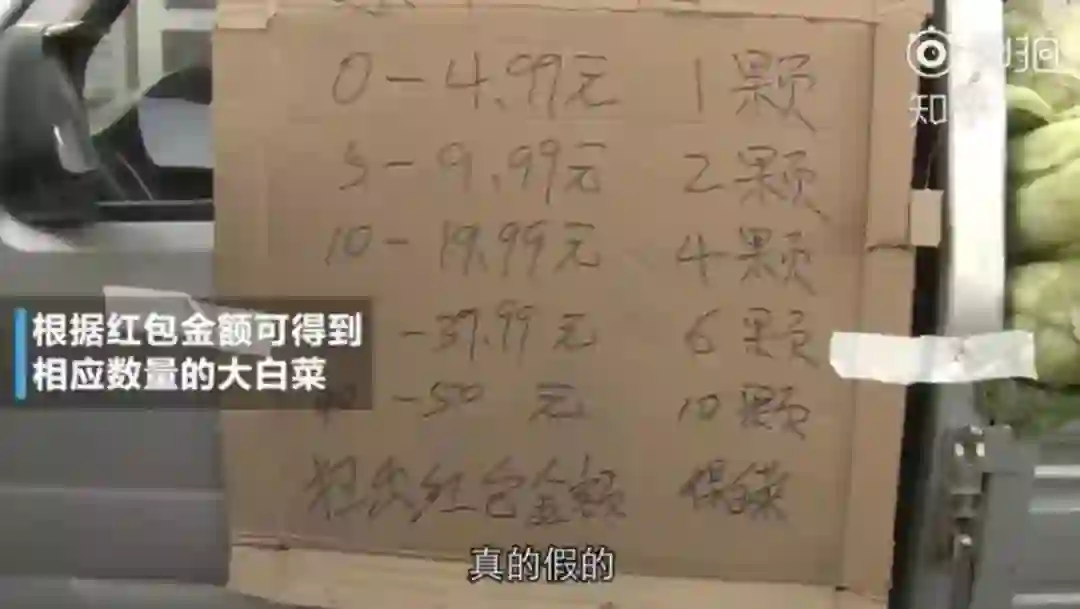 知
0-4.99元 1颗
5-9.99元 2颗
10-19.99元 4颗
-37.99元 6颗
-50元 10颗
红包金额
根据红包金额可得到
相应数量的大白菜
真的假的